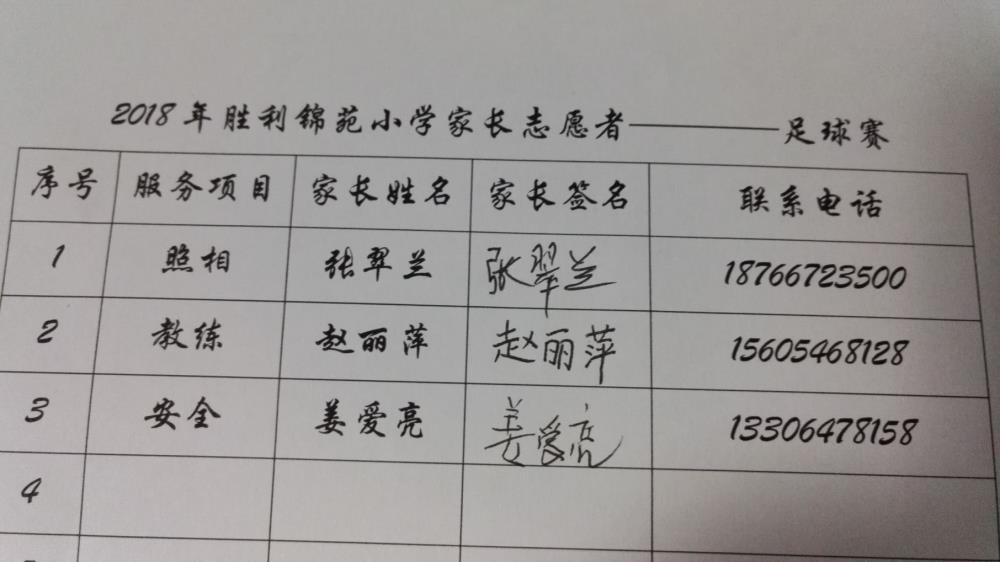 2018年胜利锦苑小学家长志愿者————足球赛
序号 服务项目 家长姓名 家长签名 联系电话
1 照相 张翠兰 张翠兰 18766723500
2 教练 赵丽萍 赵丽萍 15605468128
3 安全 姜爱亮 姜爱亮 13306478158
4